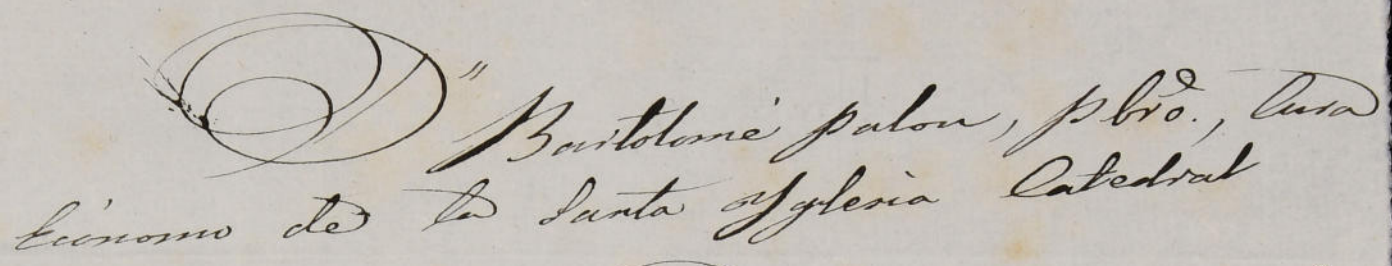 D.n Bartolomé Palou, Pbro., Cura
Ecónomo de la Santa Yglesia Catedral